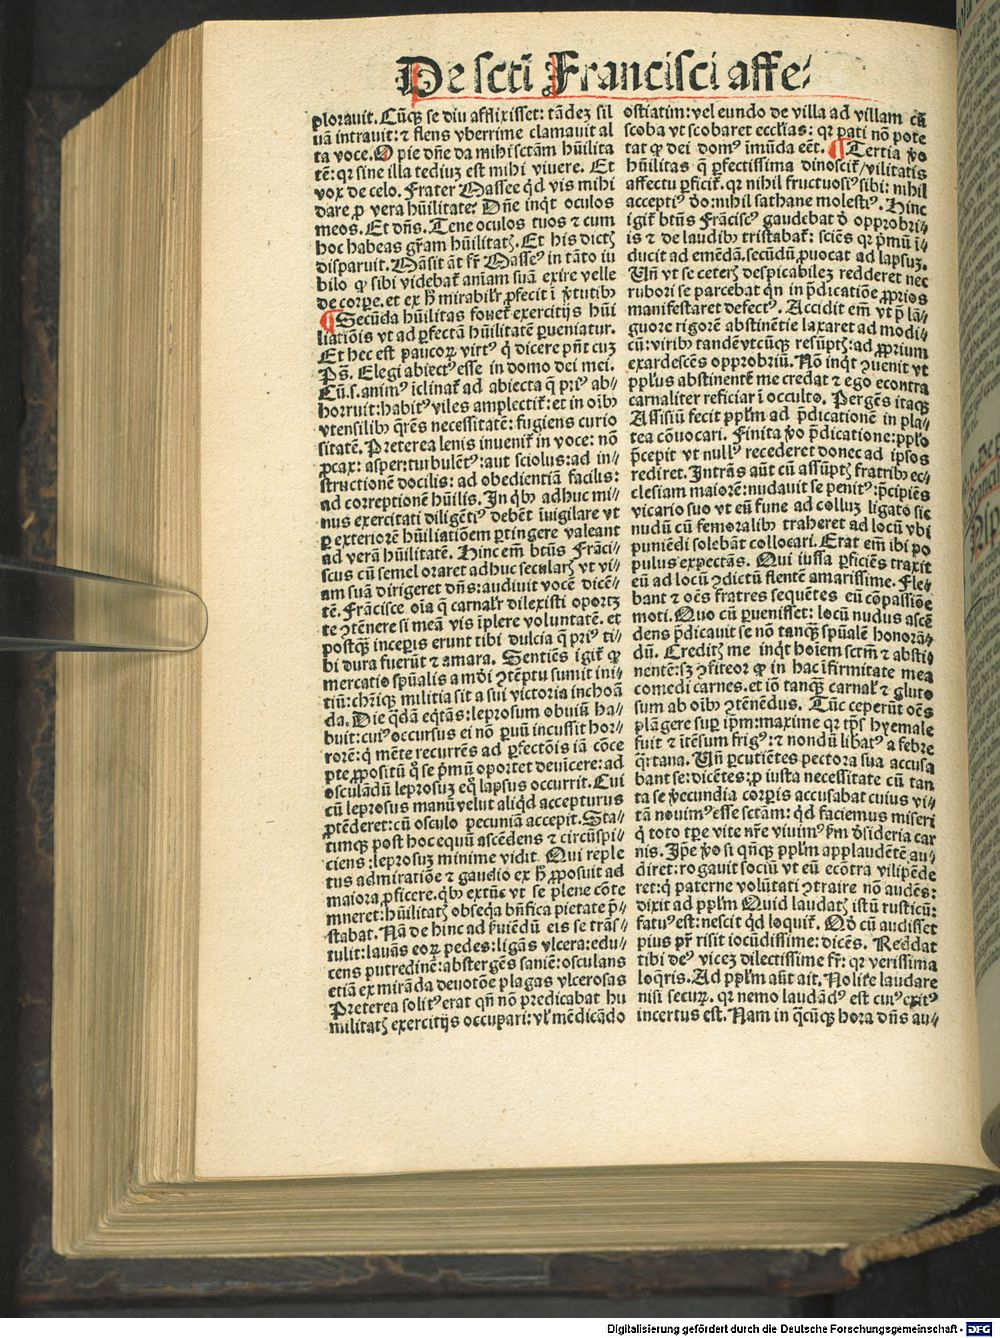 De scti Francisci affe⸗
plorauit. Cūqꝫ se diu afflixisset: tādeꝫ sil
uā intrauit: ⁊ flens vberrime clamauit al
ta voce. O pie dn̄e da mihi sctām hūilita
tē: qꝛ sine illa tediuꝫ est mihi viuere. Et
vox de celo. Frater Massee qͥd vis mihi
dare ꝓ vera hūilitate? Dn̄e inqͥt oculos
meos. Et dn̄s. Tene oculos tuos ⁊ cum
hoc habeas gr̄am hūilitatꝭ. Et his dictꝭ
disparuit. Māsit āt fr̄ Masseꝰ in tāto iu
bilo ꝙ sibi videbat᷑ aīam suā exire velle
de corpe. et ex hͦ mirabilr̄ ꝓfecit ī v̓tutibꝫ
¶ Secūda hūilitas fouet᷑ exercitijs hūi
liatiōis vt ad ꝑfectā hūilitatē ꝑueniatur.
Et hec est paucoꝝ virtꝰ qͥ dicere pn̄t cuꝫ
Ps̄. Elegi abiectꝰ esse in domo dei mei.
Cū.s. animꝰ īclinat᷑ ad abiecta q̄ priꝰ ab⸗
horruit: habitꝰ viles amplectit᷑: et in oībꝫ
vtensilibꝫ qr̄es necessitatē: fugiens curio
sitatē. Preterea lenis inuenit᷑ in voce: nō
ꝓcax: asper: turbulētꝰ: aut sciolus: ad in⸗
structionē docilis: ad obedientiā facilis:
ad correptionē hūilis. In qͥbꝫ adhuc mi⸗
nus exercitati diligētiꝰ debēt īuigilare vt
ꝑ exteriorē hūiliatiōem ꝑtingere valeant
ad verā hūilitatē. Hinc em̄ btūs Frāci⸗
scus cū semel oraret adhuc secularꝭ vt vi⸗
am suā dirigeret dn̄s: audiuit vocē dicē⸗
tē. Frācisce oīa q̄ carnalr̄ dilexisti oportꝫ
te ꝯtēnere si meā vis īplere voluntatē. et
postqꝫ̄ inceꝑis erunt tibi dulcia q̄ priꝰ ti⸗
bi dura fuerūt ⁊ amara. Sentiēs igit᷑ ꝙ
mercatio spūalis a mōi ꝯtēptu sumit ini⸗
tiū: chr̄iqꝫ militia sit a sui victoria inchoā
da. Die qͣdā eqͥtās: leprosum obuiū ha⸗
buit: cuiꝰ occursus ei nō ꝑuū incussit hor⸗
rorē: qͥ mēte recurrēs ad ꝑfectōis iā cōce
pte ꝓpositū qͥ se pͥmū oportet deuīcere: ad
osculādū leprosuꝫ eqͦ lapsus occurrit. Cui
cū leprosus manū velut aliqͥd accepturus
ꝓtēderet: cū osculo pecuniā accepit. Sta⸗
timqꝫ post hoc equū ascēdens ⁊ circūspi⸗
ciens: leprosuꝫ minime vidit. Qui reple
tus admiratiōe ⁊ gaudio ex hͦ ꝓposuit ad
maiora ꝓficere. qͥbꝫ extūc vt se plene cōte
mneret: hūilitatꝭ obseqͥa bn̄fica pietate p̄⸗
stabat. Nā de hinc ad ẜuiēdū eis se trās⸗
tulit: lauās eoꝝ pedes: ligās vlcera: edu⸗
cens putredinē: abstergēs saniē: osculans
etiā ex mirāda deuotōe plagas vlcerosas
Preterea solitꝰ erat qn̄ nō predicabat hu
militatꝭ exercitijs occupari: vl̓ mēdicādo
ostiatim: vel eundo de villa ad villam cū
scoba vt scobaret eccl̓ias: qꝛ pati nō pote
rat ꝙ dei domꝰ īmūda eēt. ¶ Tertia v̓o
hūilitas q̄ ꝑfectissima dinoscit᷑/vilitatis
affectu ꝑficit᷑. qꝛ nihil fructuosiꝰ sibi: nihil
acceptiꝰ deo: nihil sathane molestiꝰ. Hinc
igit᷑ btūs Frāciscꝰ gaudebat de opprobri⸗
is ⁊ de laudibꝫ tristabat᷑: sciēs qꝛ pͥmū ī⸗
ducit ad emēdā. secūdū ꝓuocat ad lapsuꝫ.
Vn̄ vt se ceterꝭ despicabileꝫ redderet nec
rubori se parcebat qͥn in p̄dicatiōe ꝓprios
manifestaret defectꝰ. Accidit em̄ vt p̄ lā⸗
guore rigorē abstinētie laxaret ad modi⸗
cū: viribꝫ tandē vtcūqꝫ resūptꝭ: ad ꝓprium
exardescēs opprobriū. Nō inqͥt ꝯuenit vt
pplūs abstinentē me credat ⁊ ego econtra
carnaliter reficiar ī occulto. Pergēs itaqꝫ
Assisiū fecit pplm̄ ad p̄dicationē in pla⸗
tea cōuocari. Finita v̓o p̄dicatione: pplo̓
p̄cepit vt nullꝰ recederet donec ad ipsos
rediret. Intrās aūt cū assūptꝭ fratribꝫ ec⸗
clesiam maiorē: nudauit se penitꝰ: p̄cipiēs
vicario suo vt eū fune ad colluꝫ ligato sic
nudū cū femoralibꝫ traheret ad locū vbi
puniēdi solebāt collocari. Erat em̄ ibi po
pulus expectās. Qui iussa ꝑficiēs traxit
eū ad locū ꝯdictū flentē amarissime. Fle⸗
bant ⁊ oēs fratres sequētes eū cōpassiōe
moti. Quo cū ꝑuenisset: locū nudus ascē
dens p̄dicauit se nō tanqꝫ̄ spūalē honorā⸗
dū. Creditꝭ me inqͥt hoīem sctm̄ ⁊ abstī⸗
nentē: sꝫ ꝯfiteor ꝙ in hac īfirmitate mea
comedi carnes. et iō tanqꝫ̄ carnal᷑ ⁊ gluto
sum ab oībꝫ ꝯtēnēdus. Tūc ceperūt oēs
plāgere suꝑ ip̄m: maxime qꝛ tp̄s hyemale
fuit ⁊ ītēsum frigꝰ: ⁊ nondū liƀatꝰ a febre
qͣrtana. Vn̄ ꝑcutiētes pectora sua accusa
bant se: dicētes: ꝓ iusta necessitate cū tan
ta se v̓ecundia corꝑis accusabat cuius vi⸗
tā nouimꝰ esse sctām: qͥd faciemus miseri
qͥ toto tꝑe vite nr̄e viuimꝰ ẜm desideria car
nis. Ip̄e v̓o si qn̄qꝫ pplm̄ applaudētē au⸗
diret: rogauit sociū vt eū ecōtra vilipēde
ret: qͥ paterne volūtati ꝯtraire nō audēs:
dixit ad pplm̄ Quid laudatꝭ istū rusticū:
fatuꝰ est: nescit qͥd loquit᷑. Qd̓ cū audisset
pius pr̄ risit iocūdissime: dicēs. Reddat
tibi deꝰ viceꝫ dilectissime fr̄: qꝛ verissima
loqͥris. Ad pplm̄ aūt ait. Nolite laudare
nisi securꝝ. qꝛ nemo laudādꝰ est cuiꝰ exitꝰ
incertus est. Nam in qͣcūqꝫ hora dn̄s au⸗
Digitalisierung gefördert durch die Deutsche Forschungsgemeinschaft - DFG